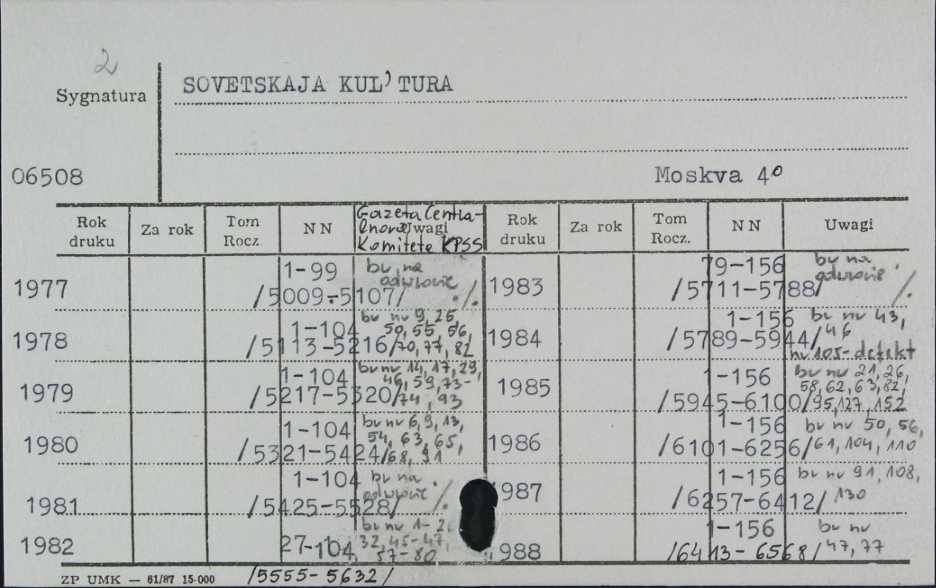 2
Sygnatura
SOVETSKAJA KUL'TURA
06508
Moskva 4°
Rok druku Za rok Tom Rocz. NN Uwagi Rok druku Za rok Tom Rocz. NN Uwagi
Komitete KPSS
1977 1-99 /5009-5107/ bv na odwrocie ./.
1978 1-104 /5113-5216/ bv nv 9, 25, 50, 55, 56, 70, 77, 82
1979 1-104 /5217-5320/ bv nv 14, 17, 29, 46, 59, 73-74, 93
1980 1-104 /5321-5424/ bv nv 6, 9, 13, 54, 63, 65, 68, 91
1981 1-104 /5425-5528/ bv na odwrocie ./.
1982 27-104 /5555-5632/ bv nv 1-2, 32, 45-47, 57-80
1983 79-156 /5711-5788/ bv na odwrocie ./.
1984 1-156 /5789-5944/ bv nv 43, 46 nv 105-defekt
1985 1-156 /5945-6100/ bv nv 21, 26, 58, 62, 63, 82, 95, 127, 152
1986 1-156 /6101-6256/ bv nv 50, 56, 61, 104, 110
1987 1-156 /6257-6412/ bv nv 91, 108, 130
1988 1-156 /6413-6568/ bv nv 47, 77
ZP UMK — 61/87 15·000